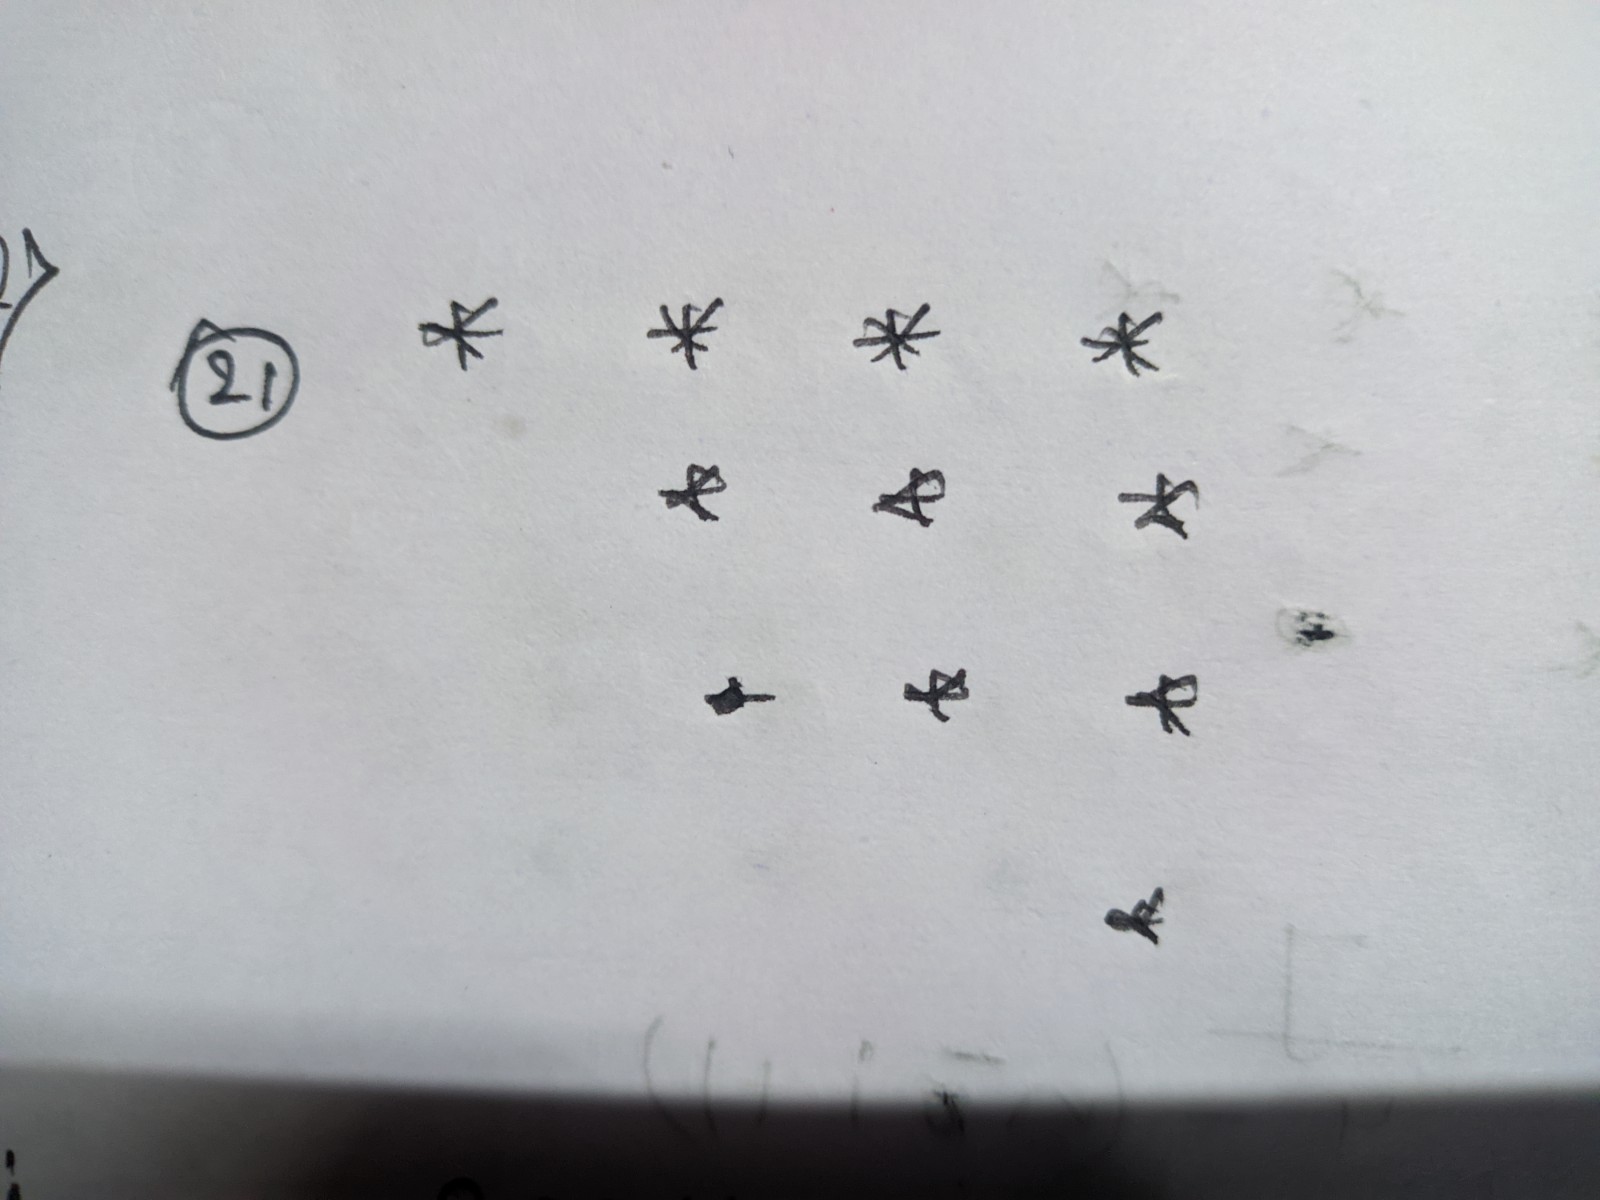 21 * * * *
* * *
* * *
*